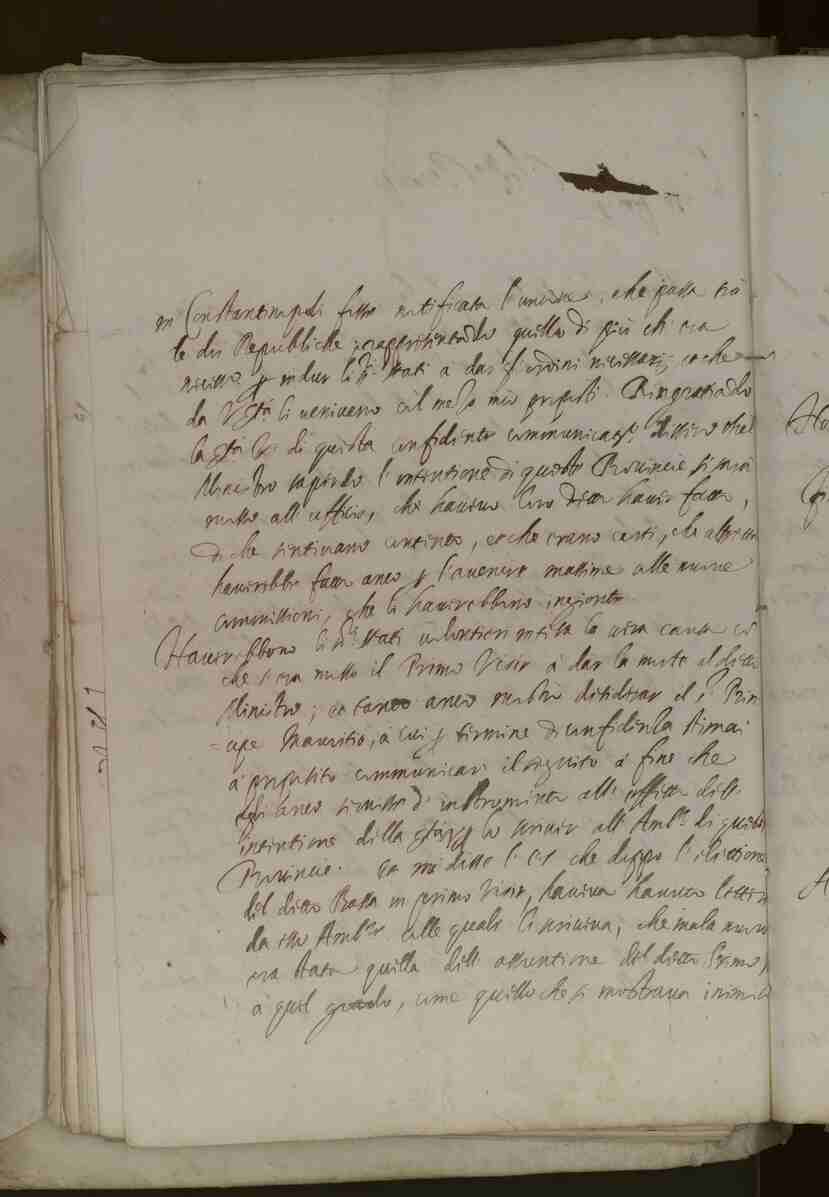 in Constantinopoli fusse notificata l'unione, che passa trà
le due Republiche; rappresentando quello di più ch'era
necess.o p. indur li SS.ri Stati à dar gl'ordini necessarij, et che
da V. S.tà li venivero col mezo mio proposti. Ringratiando
la S.tà V. di questa confidente communicat.ne dissero che 'l
Ministro sapendo l'intentione di queste Provincie si sarà
mosso all'ufficio, che havevo loro detto haver fatto,
di che sentivano contento, et che erano certi, che altretanto
haverebbe fatto anco p. l'avenire massime alle nuove
commissioni, che li haverebbono ingionte
Haverebbono li SS.ri Stati volontieri intesa la vera causa con
che s'era mosso il Primo Visir à dar la morte al detto
Ministro; et tanto anco mostrò desiderar el s.r Prin
=cipe Mauritio, à cui p. termine di confidenza stimai
à proposito communicar il seguito à fine che
egli anco servisse d'instromento alli effetti dell'
intentione della S.tà V. p. lo scriver all'Amb.r di queste
Provincie. Et mi disse l'Ecc. che doppo l'elettione
del detto Bassà in primo Visir, haveva havuto lettere
da esso Amb.r alle quali li scriveva, che mala nuova
era stata quella dell'assontione del detto
à quel grado, come quello che si mostrava inimico